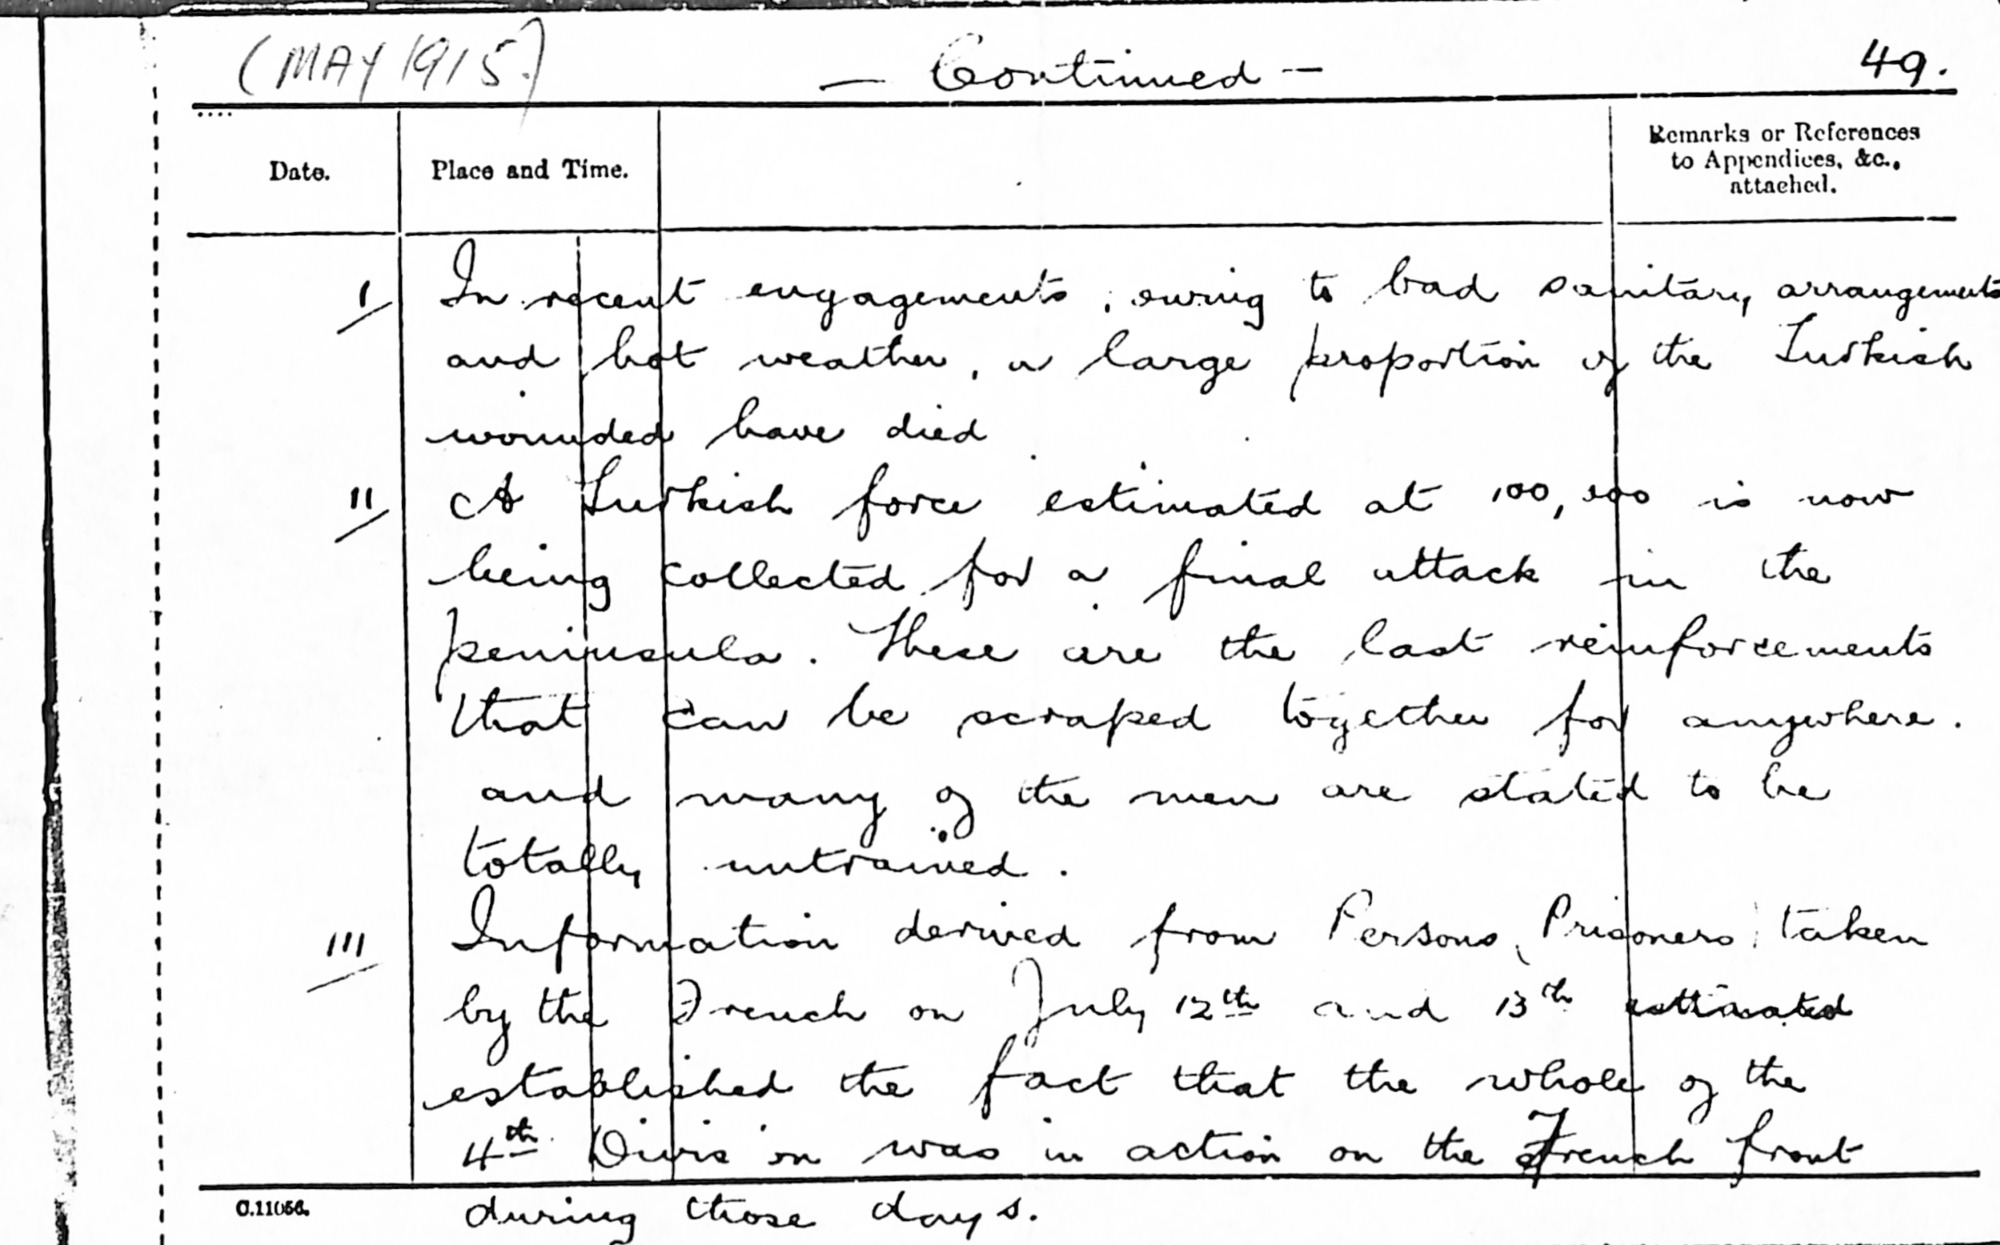 (MAY 1915)
— Continued —
49.
Date.
Place and Time.
Remarks or References
to Appendices, &c.,
attached.
I In recent engagements, owing to bad sanitary arrangements
and hot weather, a large proportion of the Turkish
wounded have died
II A Turkish force estimated at 100,000 is now
being collected for a final attack in the
peninsula. These are the last reinforcements
that can be scraped together for anywhere.
and many of the men are stated to be
totally untrained.
III Information derived from Persons (Prisoners) taken
by the French on July 12th and 13th estimated
established the fact that the whole of the
4th Division was in action on the French front
C.11056.
during those days.